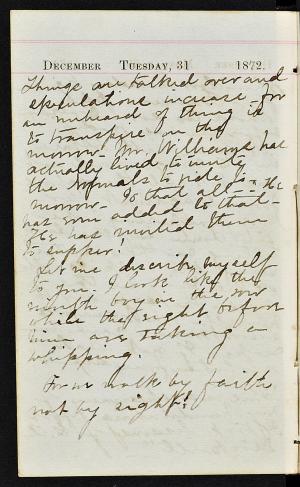 December Tuesday, 31 1872.
Things are talked over and
speculations increase. For
an unheard of thing is
to transpire on the
morrow. Mr. Williams has
actually lived to invite
the Normals to ride to-
morrow. Is that all - He
has some added to that -
He has invited them
to supper!
Let me describe myself
to you. I look like the
ninth boy in the row
while the eight before
him are taking a
whipping.
For we walk by faith
not by sight!